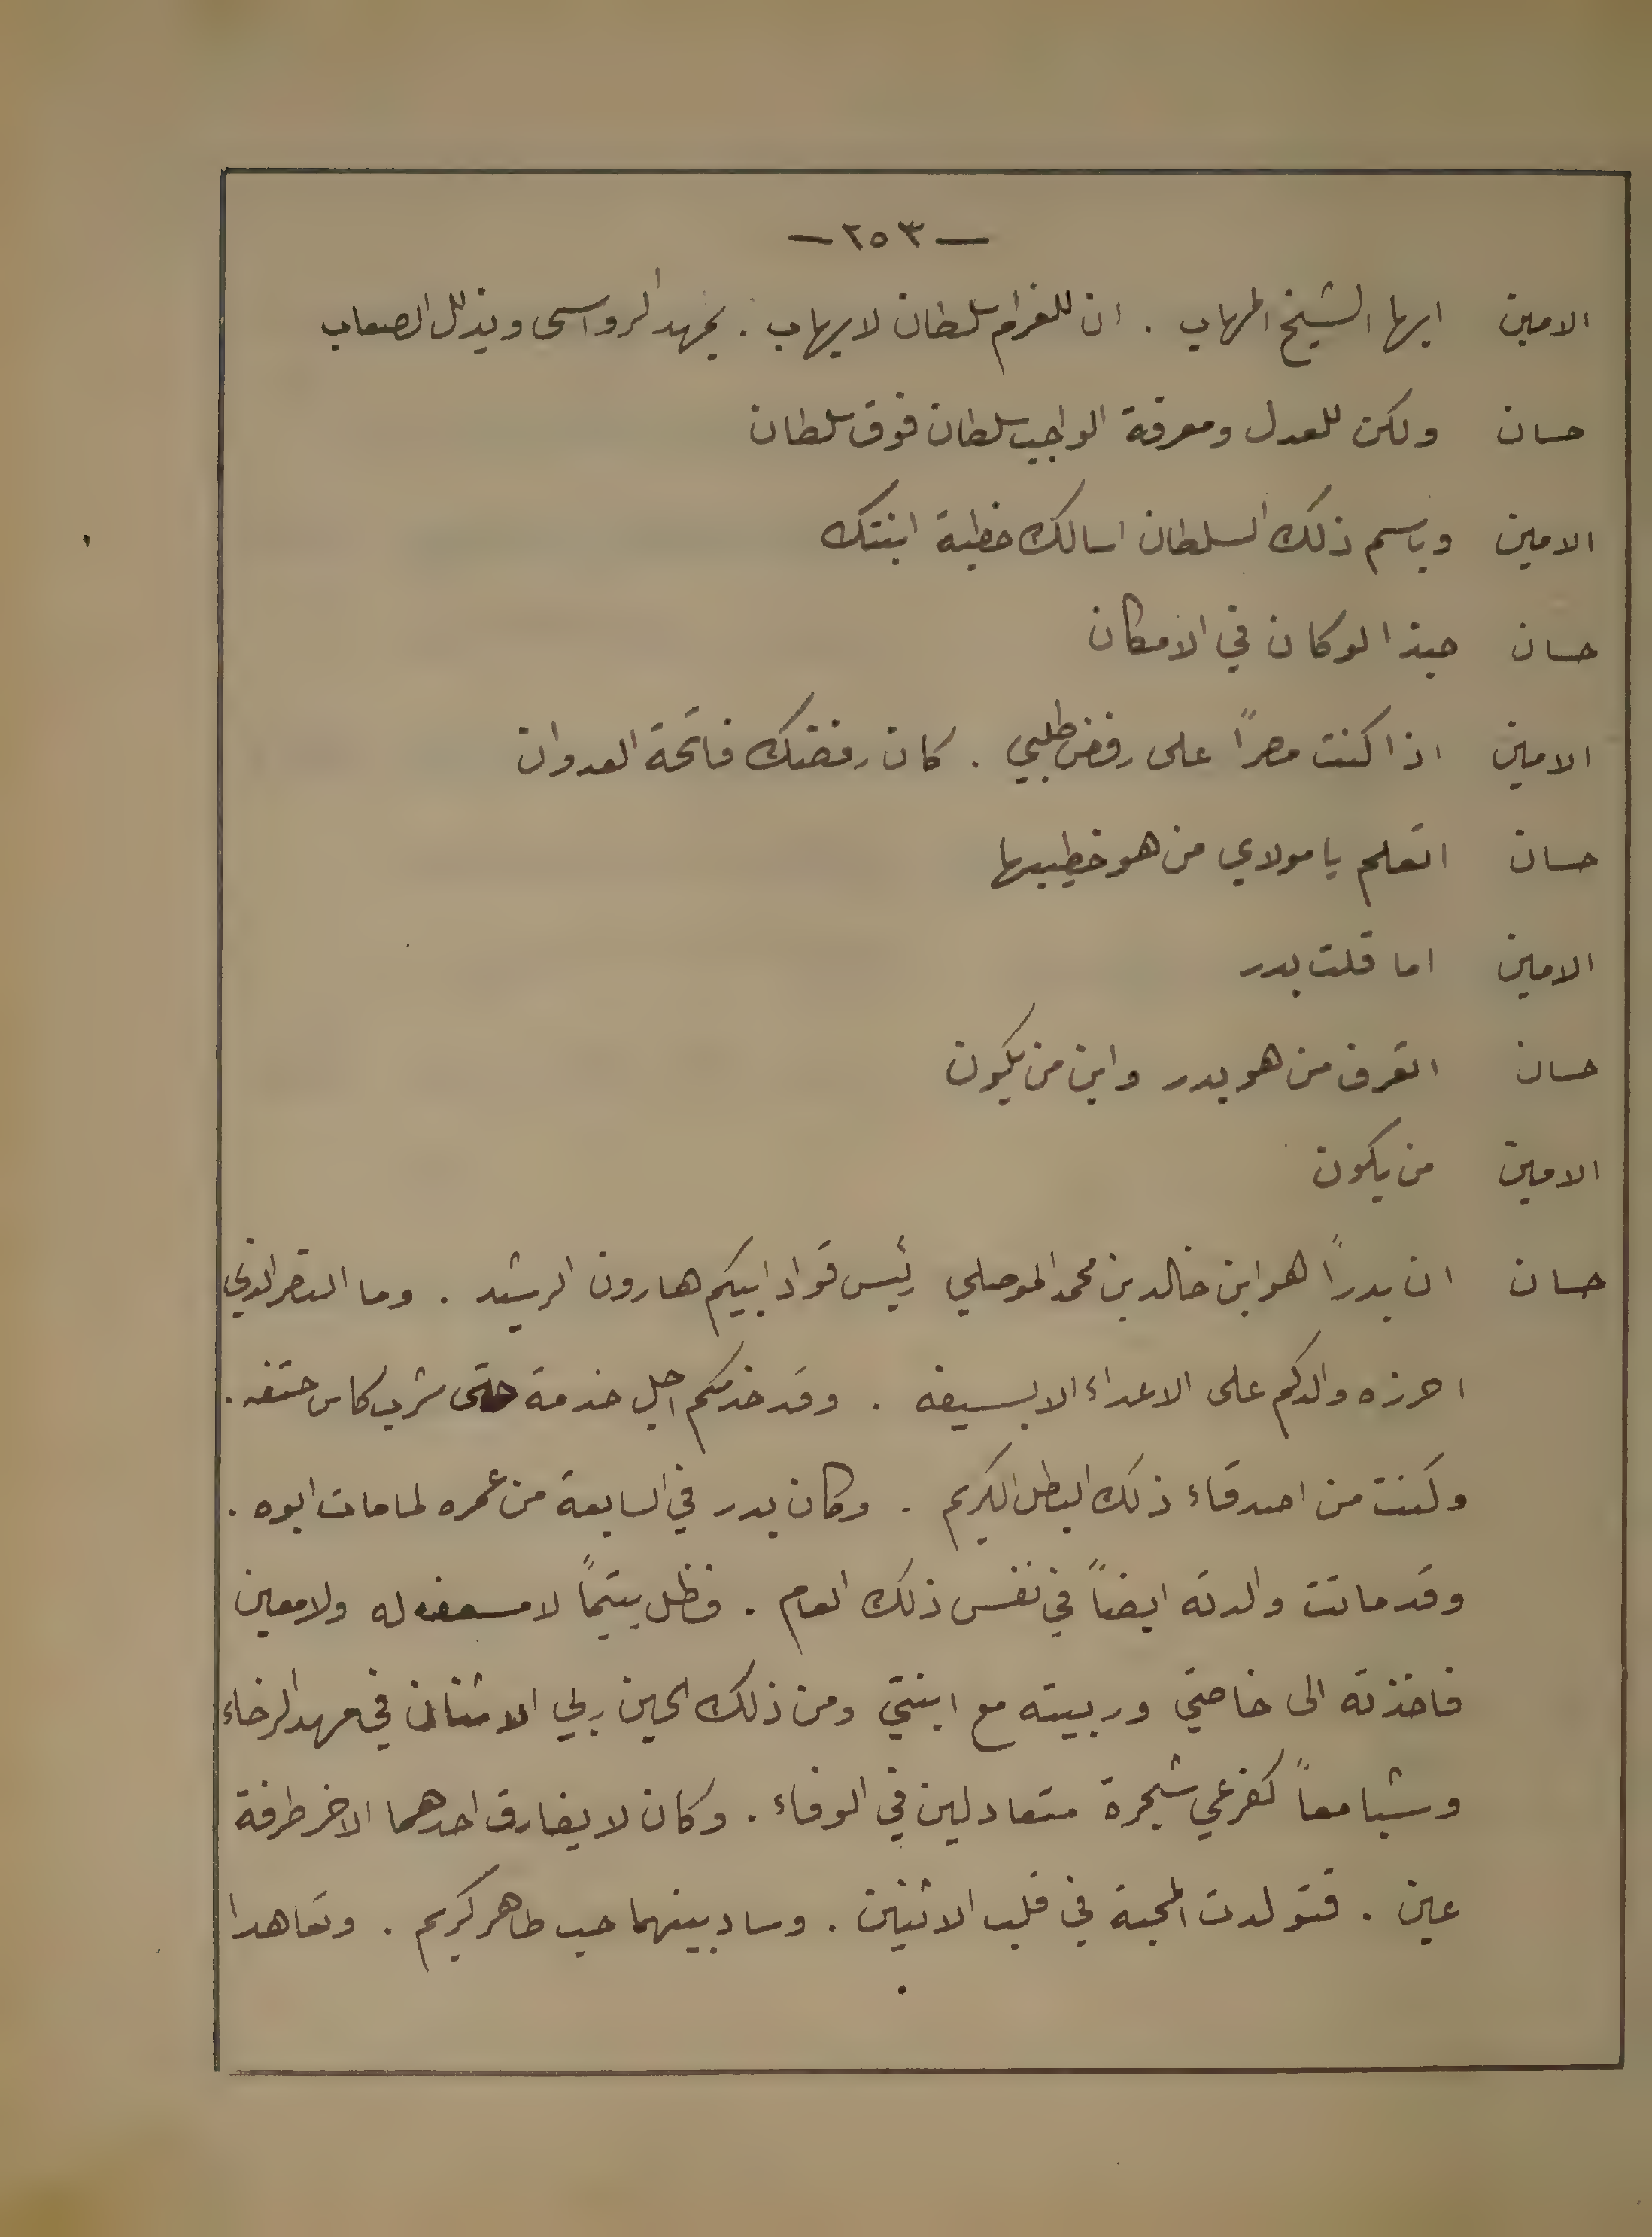 — ٢٥٣ —
الامين ايها الشيخ المهاب . ان للغرام سلطان لا يهاب . يمهد الرواسى ويذلل الصعاب
حسان ولكن للعدل ومعرفة الواجب سلطان فوق سلطان
الامين وباسم ذلك السلطان اسالك خطبة ابنتك
حسان حبذا لو كان في الامكان
الامين اذا كنت مصراً على رفض طلبي . كان رفضك فاتحة العدوان
حسان اتعلم يا مولاي من هو خطيبها
الامين اما قلت بدر
حسان اتعرف من هو بدر وابن من يكون
الامين من يكون
حسان ان بدراً هو ابن خالد بن محمد الموصلي رئيس قواد ابيكم هارون الرشيد . وما النصر الذي
احرزه والدكم على الاعداء الا بسيفه . وقد خدمكم اجل خدمة حتى شرب كاس حتفه .
وكنت من اصدقاء ذلك البطل الكريم . وكان بدر في السابعة من عمره لما مات ابوه .
وقد ماتت والدته ايضاً في نفس ذلك العام . فظل يتيماً لا مسعف له ولا معين
فاخذته الى خاصتي وربيته مع ابنتي ومن ذلك الحين ربي الاثنان في مهد الرخاء
وشبا معاً كفرعي شجرة متعادلين في الوفاء . وكان لا يفارق احدهما الاخر طرفة
عين . فتولدت المحبة في قلب الاثنين . وساد بينهما حب طاهر كريم . وتعاهدا